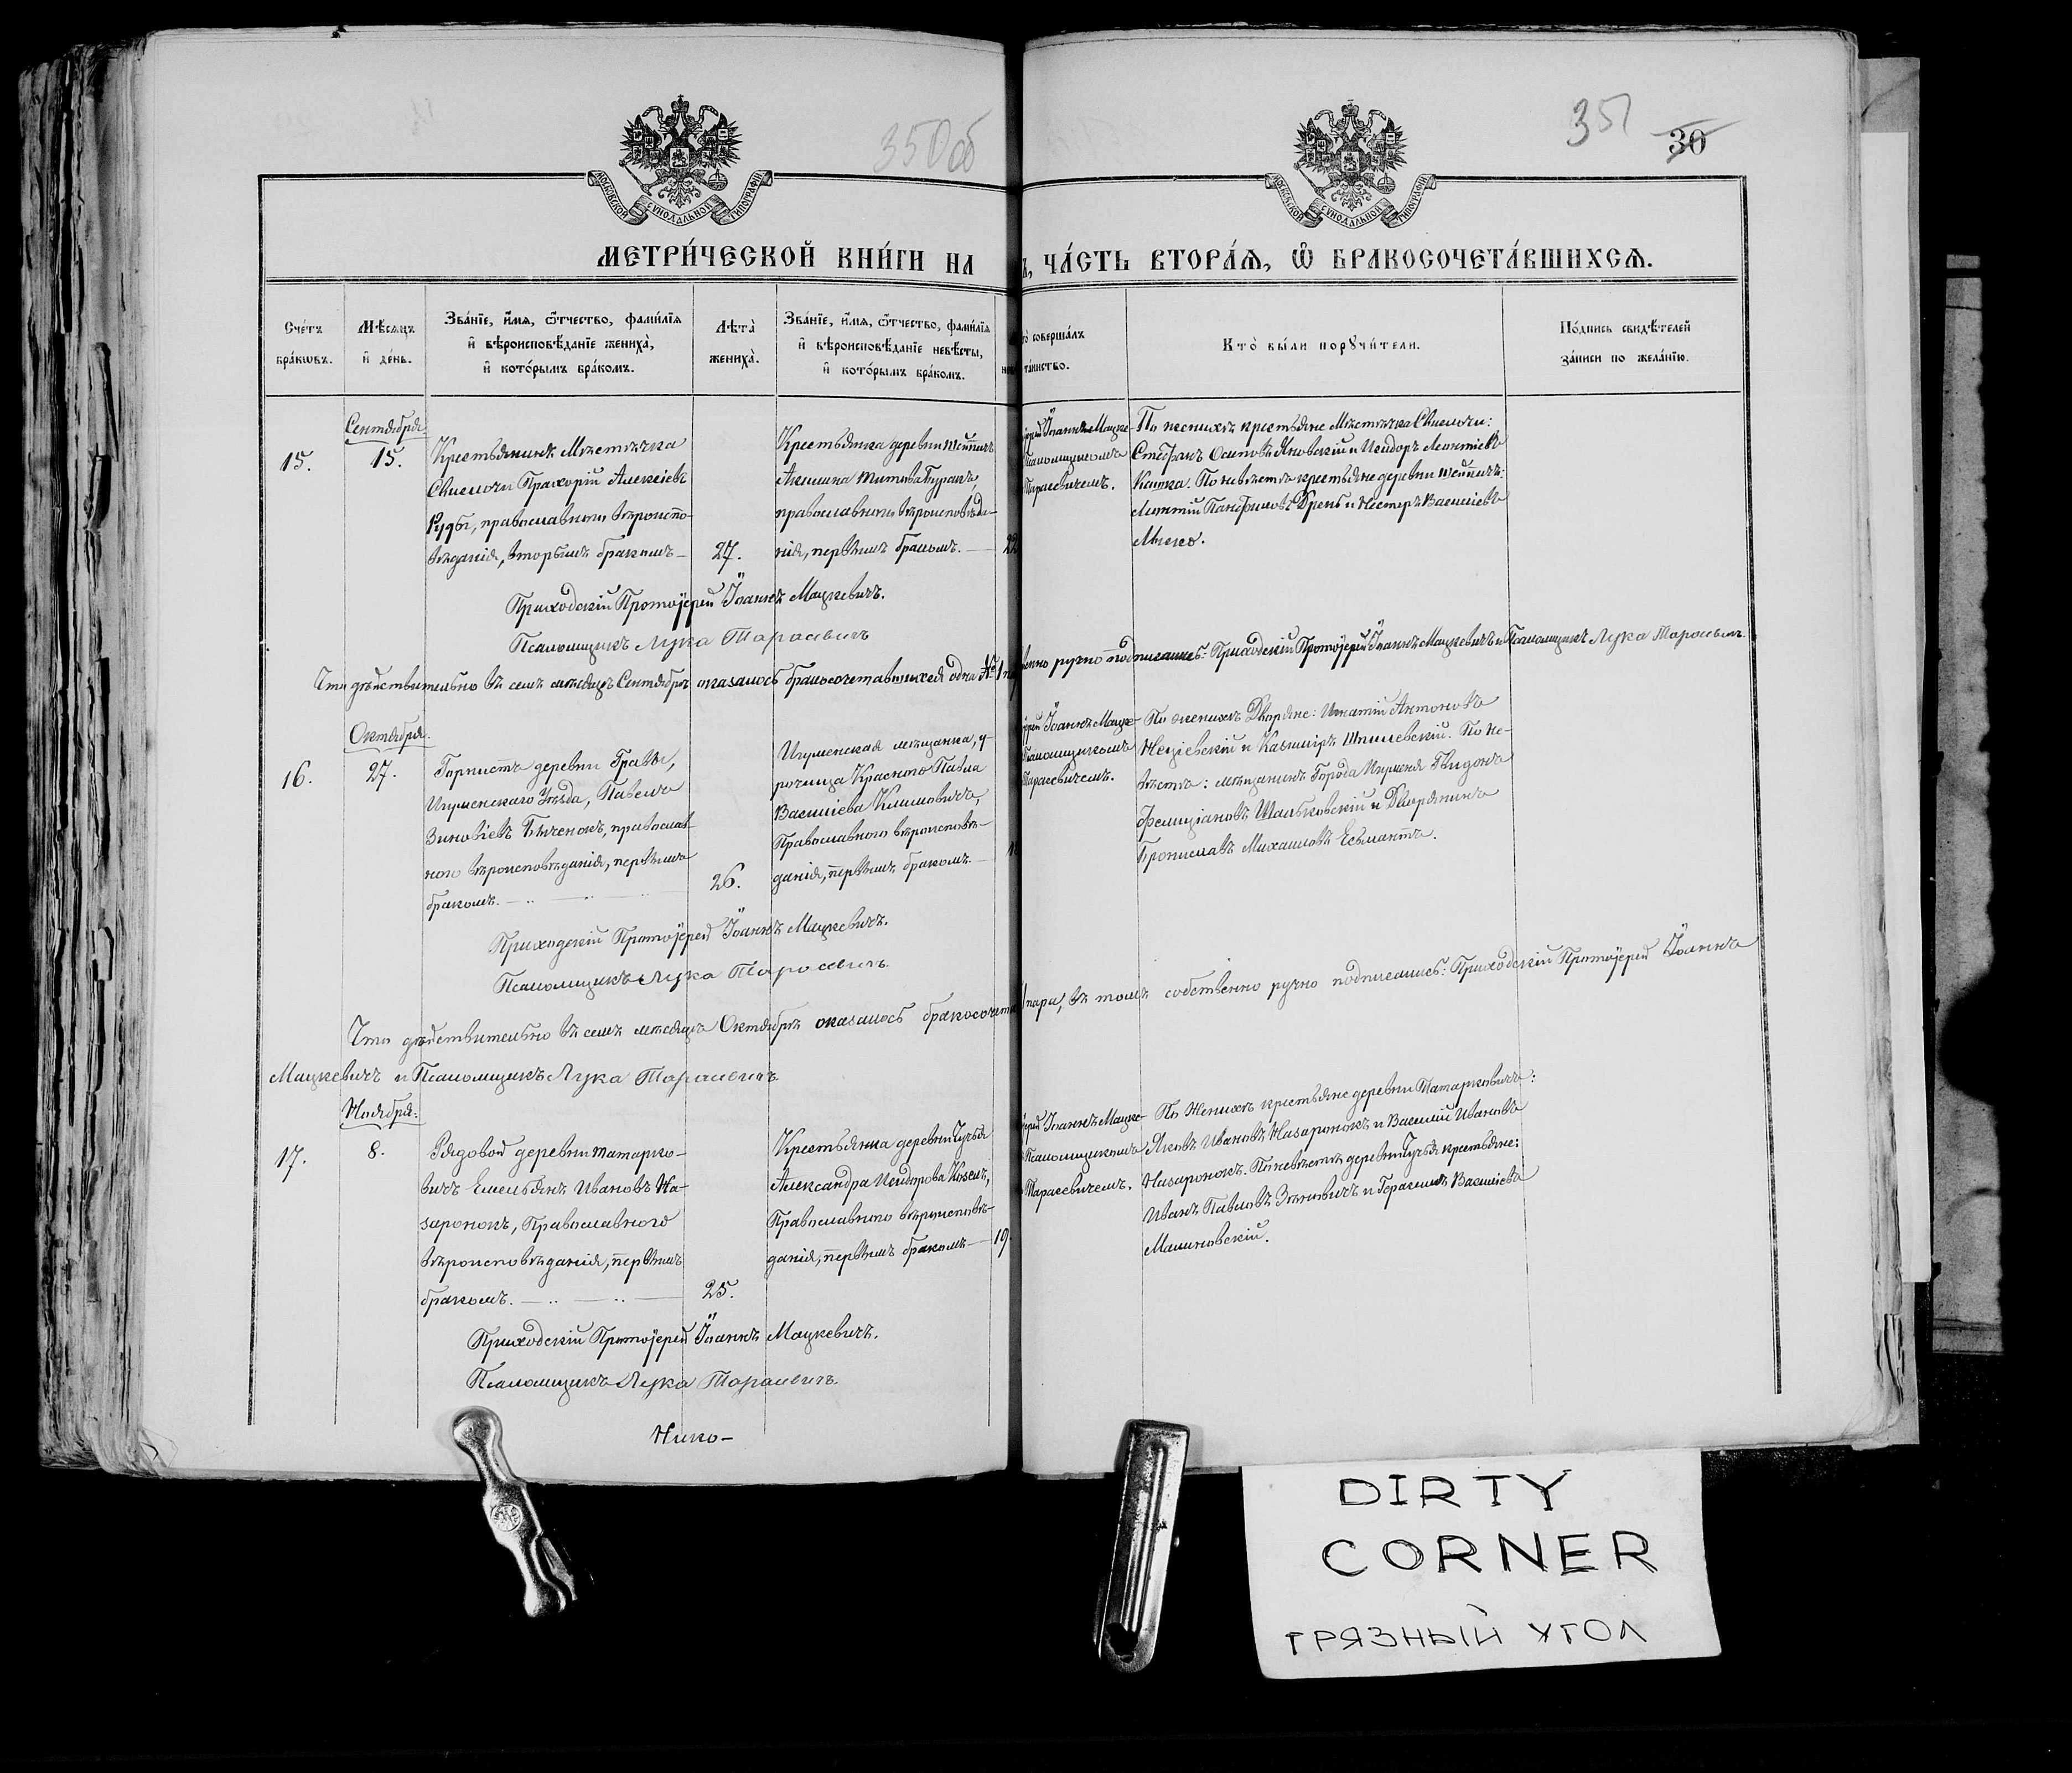 350 об
351
30
МОСКОВСКОЙ СУНОДАЛЬНОЙ ТИПОГРАФІИ
МОСКОВСКОЙ СУНОДАЛЬНОЙ ТИПОГРАФІИ
МЕТРИ́ЧЕСКОЙ КНИ́ГИ НА
, ЧА́СТЬ ВТОРА́Ѧ, Ѽ БРАКОСОЧЕТА́ВШИХСѦ.
Сче́тъ
бра́кѡвъ.
Мѣ́сѧцъ
и҆ де́нь.
Зва́нїе, и҆́мѧ, ѻ҆́тчество, фами́лїѧ
и҆ вѣроисповѣ́данїе жениха̀,
и҆ кото́рымъ бра́комъ.
Лѣта̀
жениха̀.
Зва́нїе, и҆́мѧ, ѻ҆́тчество, фами́лїѧ
и҆ вѣроисповѣ́данїе невѣ́сты,
и҆ кото́рымъ бра́комъ.
то̀ соверша́лъ
та́инство.
Кто̀ бы́ли порꙋчи́тели.
По́дпись свидѣ́телей
за́писи по жела́нїю.
15.
Сентября
15.
Крестьянинъ Мѣстечка
Свислочи Прохорій Алексіевъ
Рудь, православнаго вѣроиспо-
вѣданія, вторымъ бракомъ
27.
Крестьянка деревни
Акилина Титова
православнаго вѣроисповѣда-
нія, первымъ бракомъ.
22
Іоаннъ Мацке-
Псаломщикомъ
Тарасевичемъ.
По женихѣ крестьяне Мѣстечка Свислочи:
Стефанъ Осиповъ Яновскій и Исидоръ Леонтіевъ
Кашка. По невѣстѣ крестьяне деревни
Леонтій Панфиловъ и Несторъ Васильевъ
Приходскій Протоіерей Іоаннъ Мацкевичъ.
Псаломщикъ Лука Тарасевичъ
Что дѣйствительно въ семъ мѣсяцѣ Сентябрѣ оказалось бракосочетавшихся одна № 1
венно ручно подписались: Приходскій Протоіерей Іоаннъ Мацкевичъ и Псаломщикъ Лука Тарасевичъ.
16.
Октября.
27.
Горнистъ деревни Гравы,
Игуменскаго Уѣзда, Павелъ
Зиновіевъ православ-
наго вѣроисповѣданія, первымъ
бракомъ.
26.
Игуменская мѣщанка, у-
рочища Краснаго Павла
Васильева Климовичъ,
Православнаго вѣроисповѣ-
данія, первымъ бракомъ.
Іоаннъ Мацке-
Псаломщикомъ
Тарасевичемъ.
По женихѣ Дворяне: Игнатій Антоновъ
и Казиміръ Шпилевскій. По не-
вѣстѣ: мѣщанинъ Города Игуменя
Фелиціановъ и Дворянинъ
Брониславъ Михаиловъ Есьмантъ.
Приходскій Протоіерей Іоаннъ Мацкевичъ.
Псаломщикъ Лука Тарасевичъ.
Что дѣйствительно въ семъ мѣсяцѣ Октябрѣ оказалось бракосочета
пара, въ томъ собственно ручно подписались: Приходскій Протоіерей Іоаннъ
Мацкевичъ и Псаломщикъ Лука Тарасевичъ.
17.
Ноября:
8.
Рядовой деревни Татарко-
вичъ Емельянъ Ивановъ На-
заронокъ, Православнаго
вѣроисповѣданія, первымъ
бракомъ.
25.
Крестьянка деревни
Александра Исидорова
Православнаго вѣроисповѣ-
данія, первымъ бракомъ
19.
Іоаннъ Мацке-
Псаломщикомъ
Тарасевичемъ.
По Женихѣ крестьяне деревни Татарковичъ:
Яковъ Ивановъ Назаронокъ и Василій Ивановъ
Назаронокъ. По невѣстѣ деревни крестьяне:
Иванъ Павловъ и Герасимъ Васильевъ
Малиновскій.
Приходскій Протоіерей Іоаннъ Мацкевичъ.
Псаломщикъ Лука Тарасевичъ.
Нико-
DIRTY
CORNER
ГРЯЗНЫЙ УГОЛ